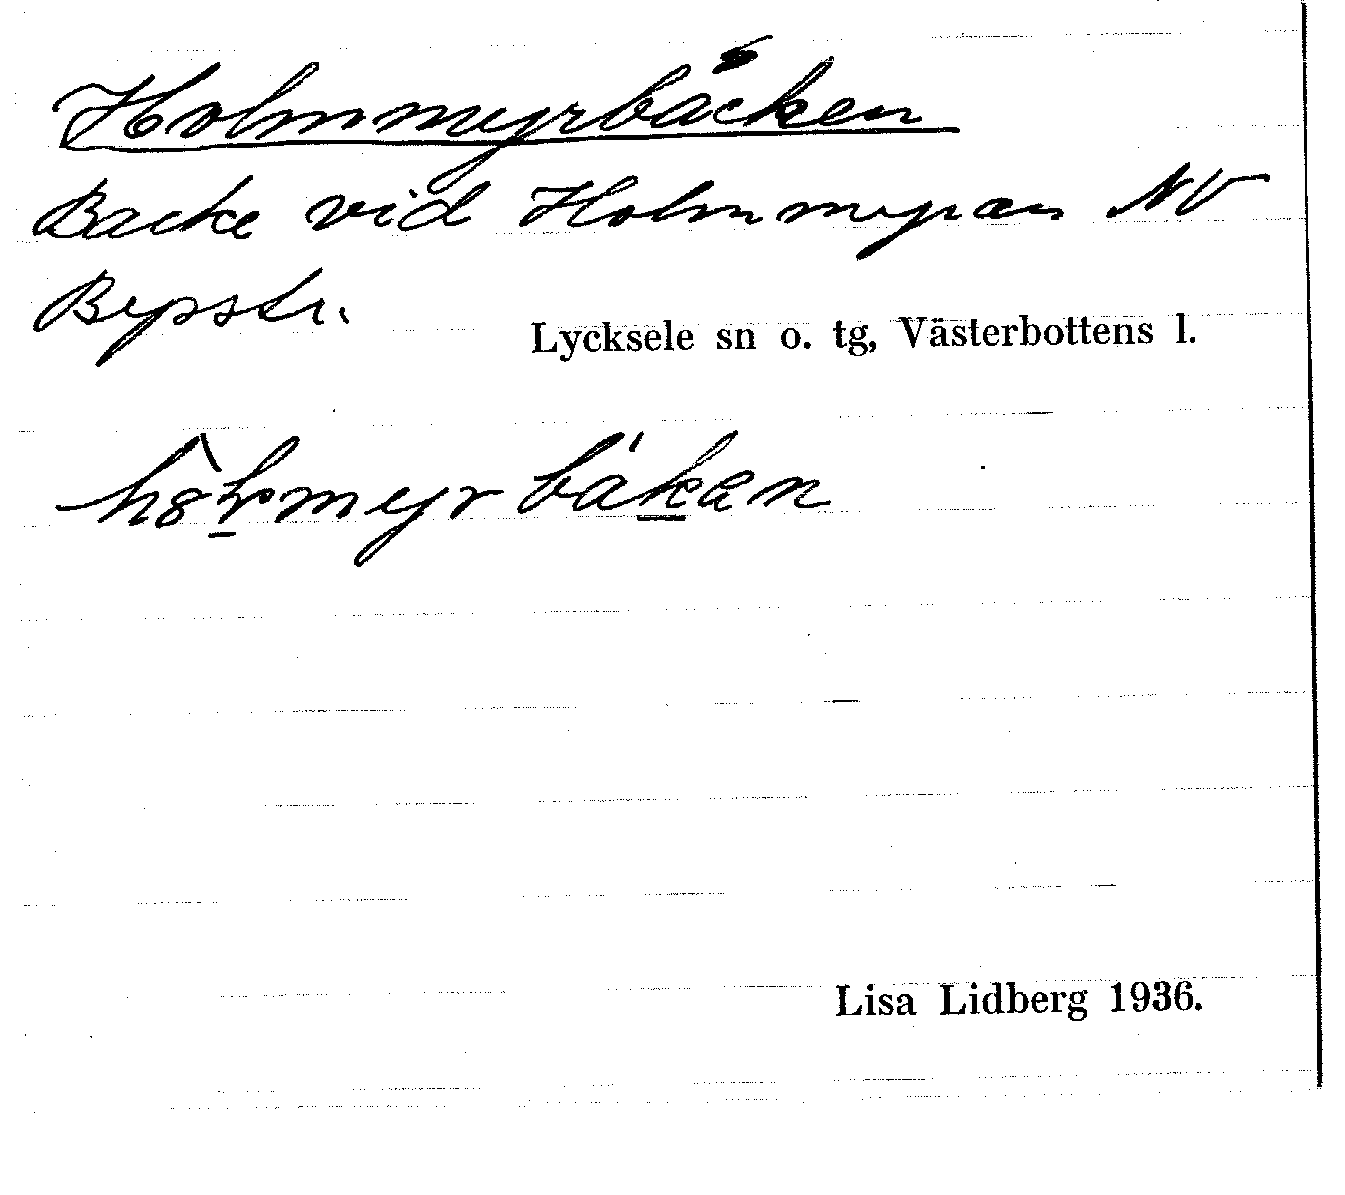 Holmmyrbacken
Backe vid Holmmyran NV
Bysstr.
Lycksele sn o. tg, Västerbottens l.
Lisa Lidberg 1936.